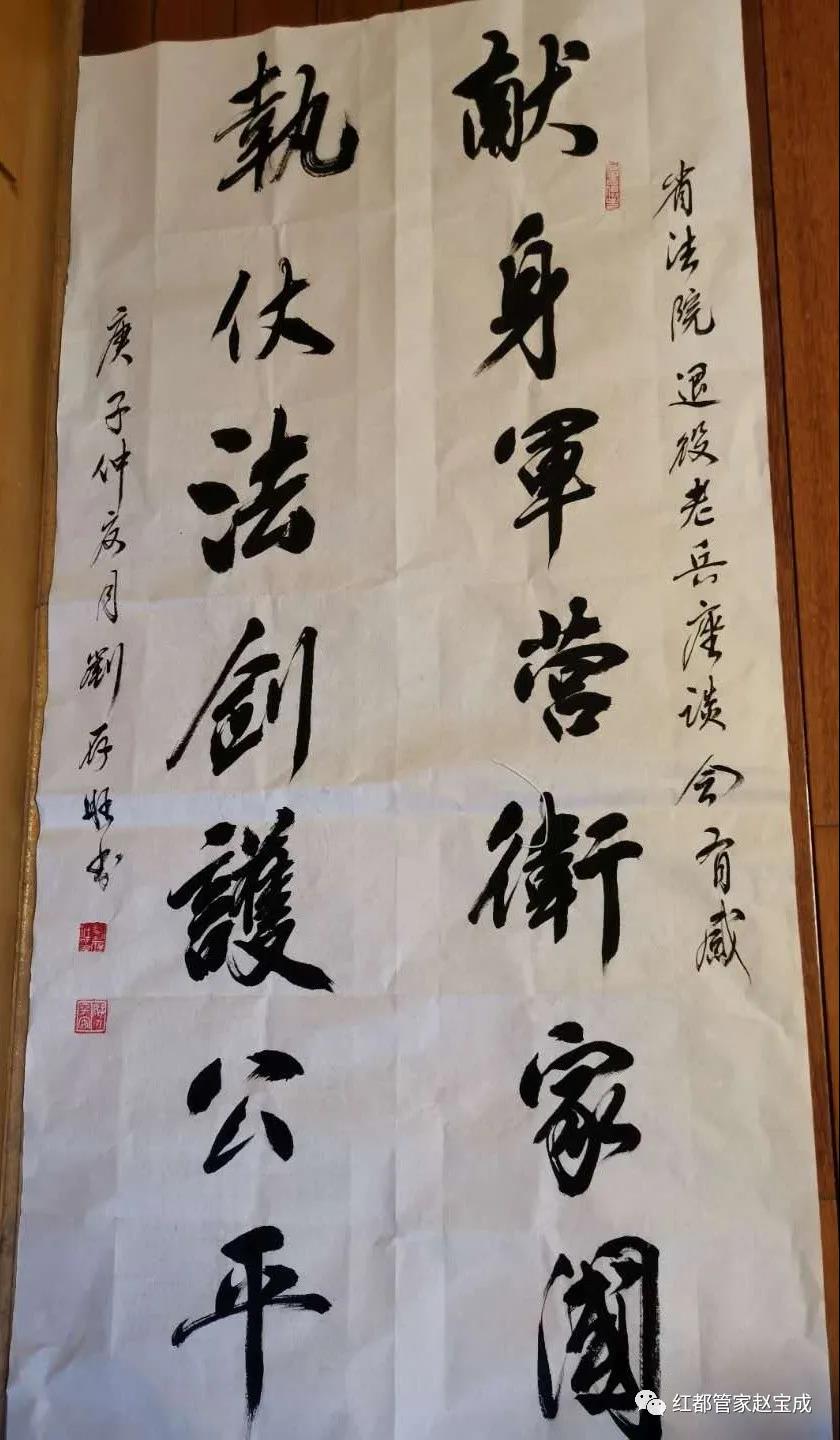 省法院退役老兵座谈会有感
献身軍营衛家國
執仗法剑護公平
庚子仲夏月劉存旺书
红都管家赵宝成